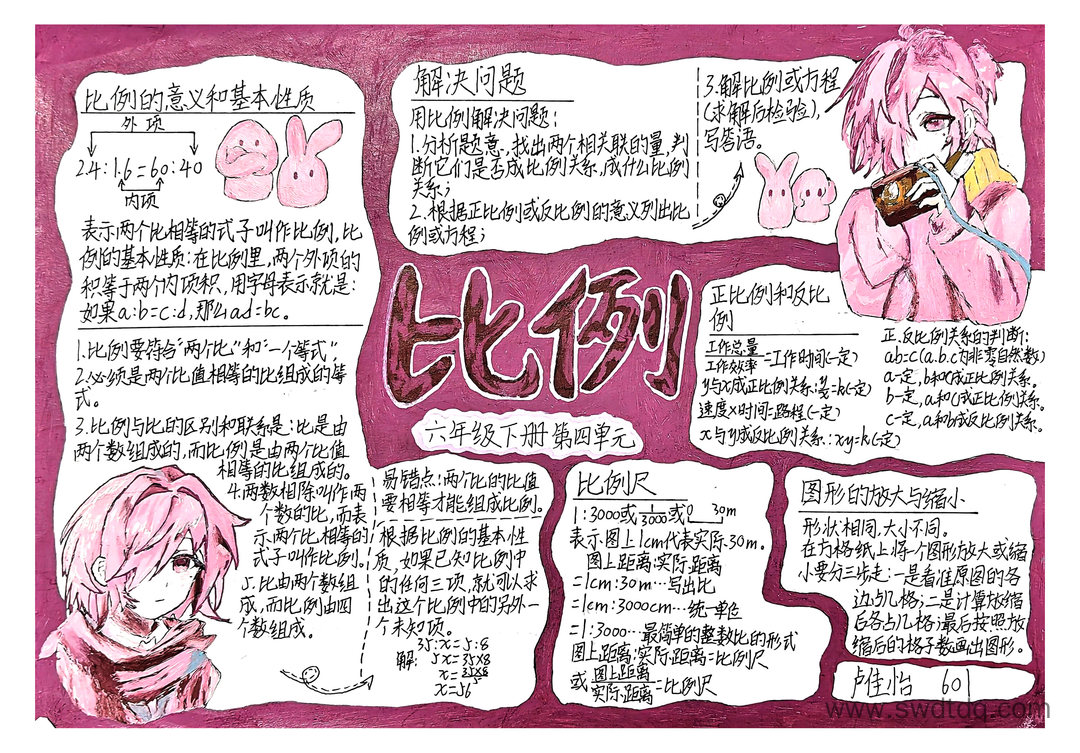 比例的意义和基本性质
外项
2.4:1.6=60:40
内项
表示两个比相等的式子叫作比例,比
例的基本性质:在比例里,两个外项的
积等于两个内项积,用字母表示就是:
如果a:b=c:d,那么ad=bc。
1.比例要符合“两个比”和“一个等式”
2.必须是两个比值相等的比组成的等
式。
3.比例与比的区别和联系是:比是由
两个数组成的,而比例是由两个比值
相等的比组成的。
4.两数相除叫作两
个数的比,而表
示两个比相等的
式子叫作比例。
5.比由两个数组
成,而比例由四
个数组成。
易错点:两个比的比值
要相等才能组成比例。
根据比例的基本性
质,如果已知比例中
的任何三项,就可以求
出这个比例中的另外一
个未知项。
35:x=5:8
解: 5x=35×8
x=35×8/5
x=56
解决问题
用比例解决问题:
1.分析题意,找出两个相关联的量,判
断它们是否成比例关系,成什么比例
关系;
2.根据正比例或反比例的意义列出比
例或方程;
3.解比例或方程
(求解后检验),
写答语。
比例
六年级下册第四单元
正比例和反比
例
工作总量/工作效率=工作时间(一定)
y与x成正比例关系:y/x=k(一定)
速度×时间=路程(一定)
x与y成反比例关系:xy=k(一定)
正、反比例关系的判断:
ab=c(a.b.c为非零自然数)
a一定,b和c成正比例关系。
b一定,a和c成正比例关系。
c一定,a和b成反比例关系。
比例尺
1:3000或1/3000或0 30m
表示图上1cm代表实际30m。
图上距离:实际距离
=1cm:30m…写出比
=1cm:3000cm…统一单位
=1:3000…最简单的整数比的形式
图上距离:实际距离=比例尺
或图上距离/实际距离=比例尺
图形的放大与缩小
形状相同,大小不同。
在方格纸上将个图形放大或缩
小要分三步走:一是看准原图的各
边占几格;二是计算放缩
后各占几格;最后按照放
缩后的格子数画出图形。
卢佳怡 601
www.swdtdq.com